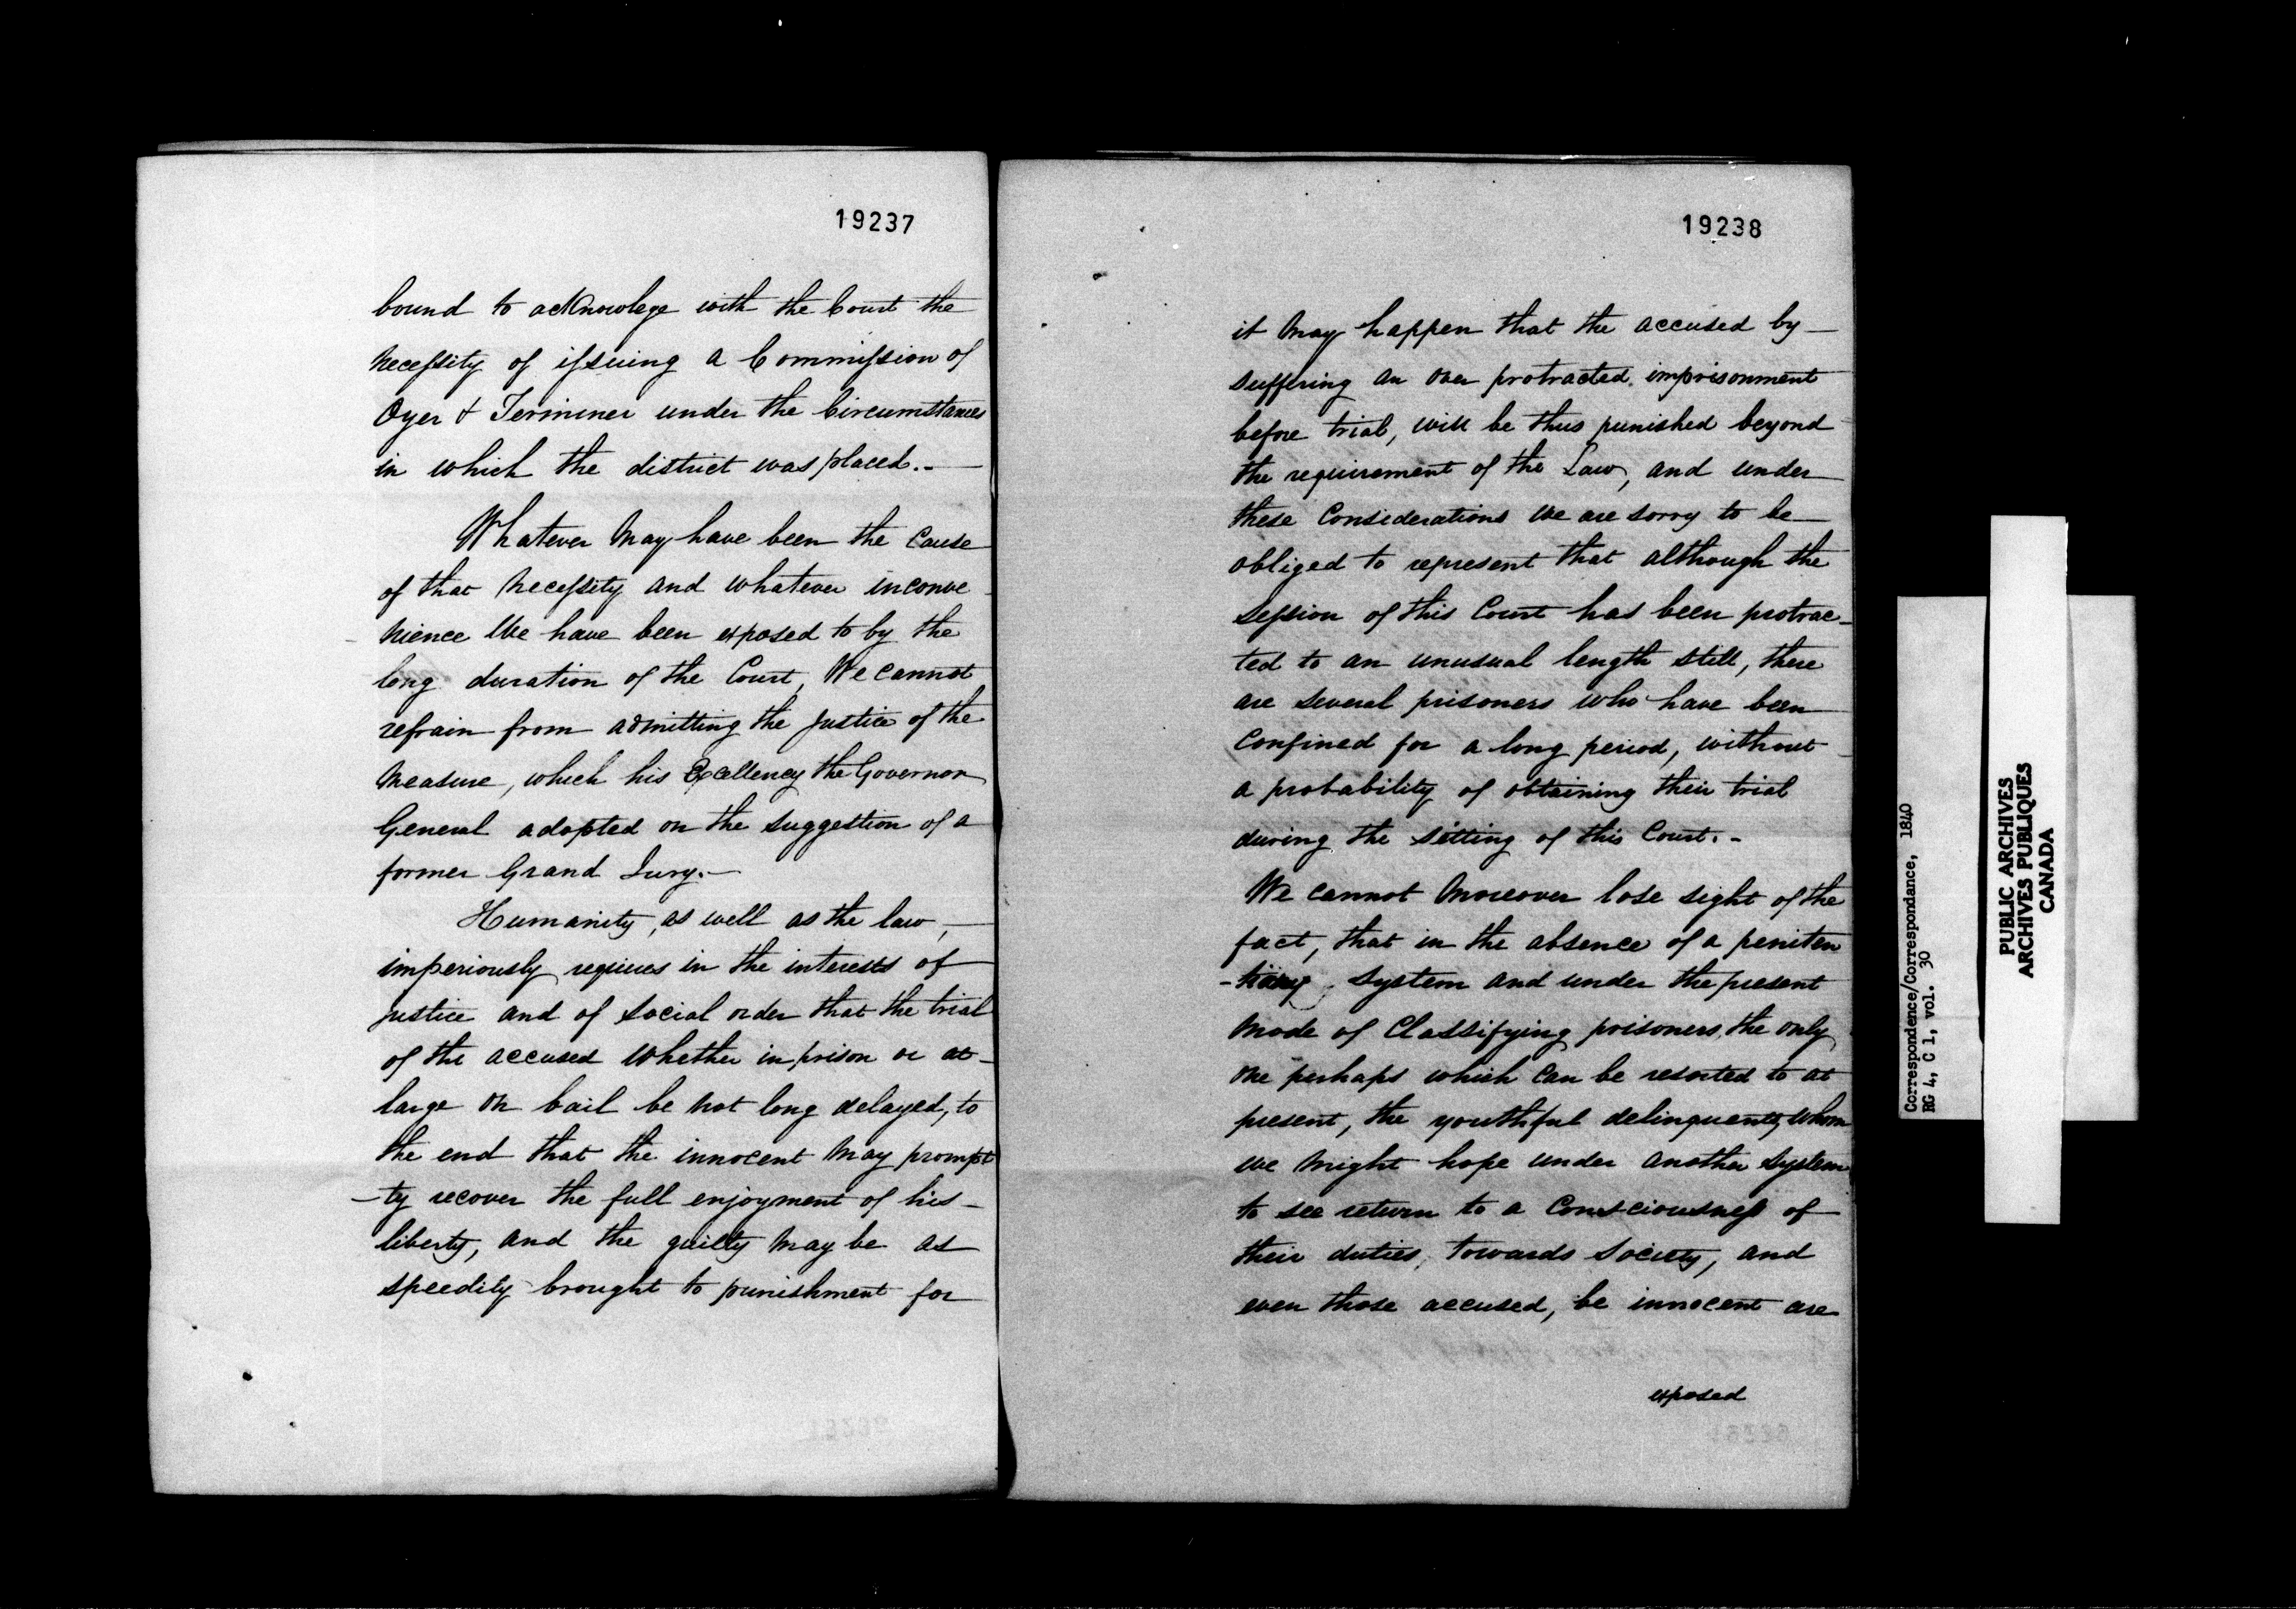 19237
bound to acknowlege with the Court the
necessity of issuing a Commission of
Oyer & Terminer under the Circumstances
in which the district was placed.-
Whatever may have been the Cause
of that necessity and whatever inconve
nience We have been exposed to by the
long duration of the Court, We cannot
refrain from admitting the Justice of the
measure, which his Excellency the Governor
General adopted on the suggestion of a
former Grand Jury.-
Humanity, as well as the law,
imperiously requires in the interests of
justice and of social order that the trial
of the accused whether in prison or at
large on bail be not long delayed, to
the end that the innocent may prompt
-ly recover the full enjoyment of his
liberty, and the guilty may be as
speedily brought to punishment for
19238
it may happen that the accused by
suffering an over protracted imprisonment
before trial, will be thus punished beyond
the requirement of the Law, and under
these Considerations we are sorry to be
obliged to represent that although the
session of this Court has been protrac-
ted to an unusual length still, there
are several prisoners who have been
Confined for a long period, without
a probability of obtaining their trial
during the sitting of this Court.-
We cannot moreover lose sight of the
fact, that in the absence of a peniten
-tiary system and under the present
mode of Classifying prisoners, the only
one perhaps which can be resorted to at
present, the youthful delinquents, whom
we might hope under another system
to see return to a Consciousness of
their duties, towards Society, and
even those accused, be innocent are
exposed
Correspondence/Correspondance, 1840
RG 4, C 1, vol. 30
PUBLIC ARCHIVES
ARCHIVES PUBLIQUES
CANADA